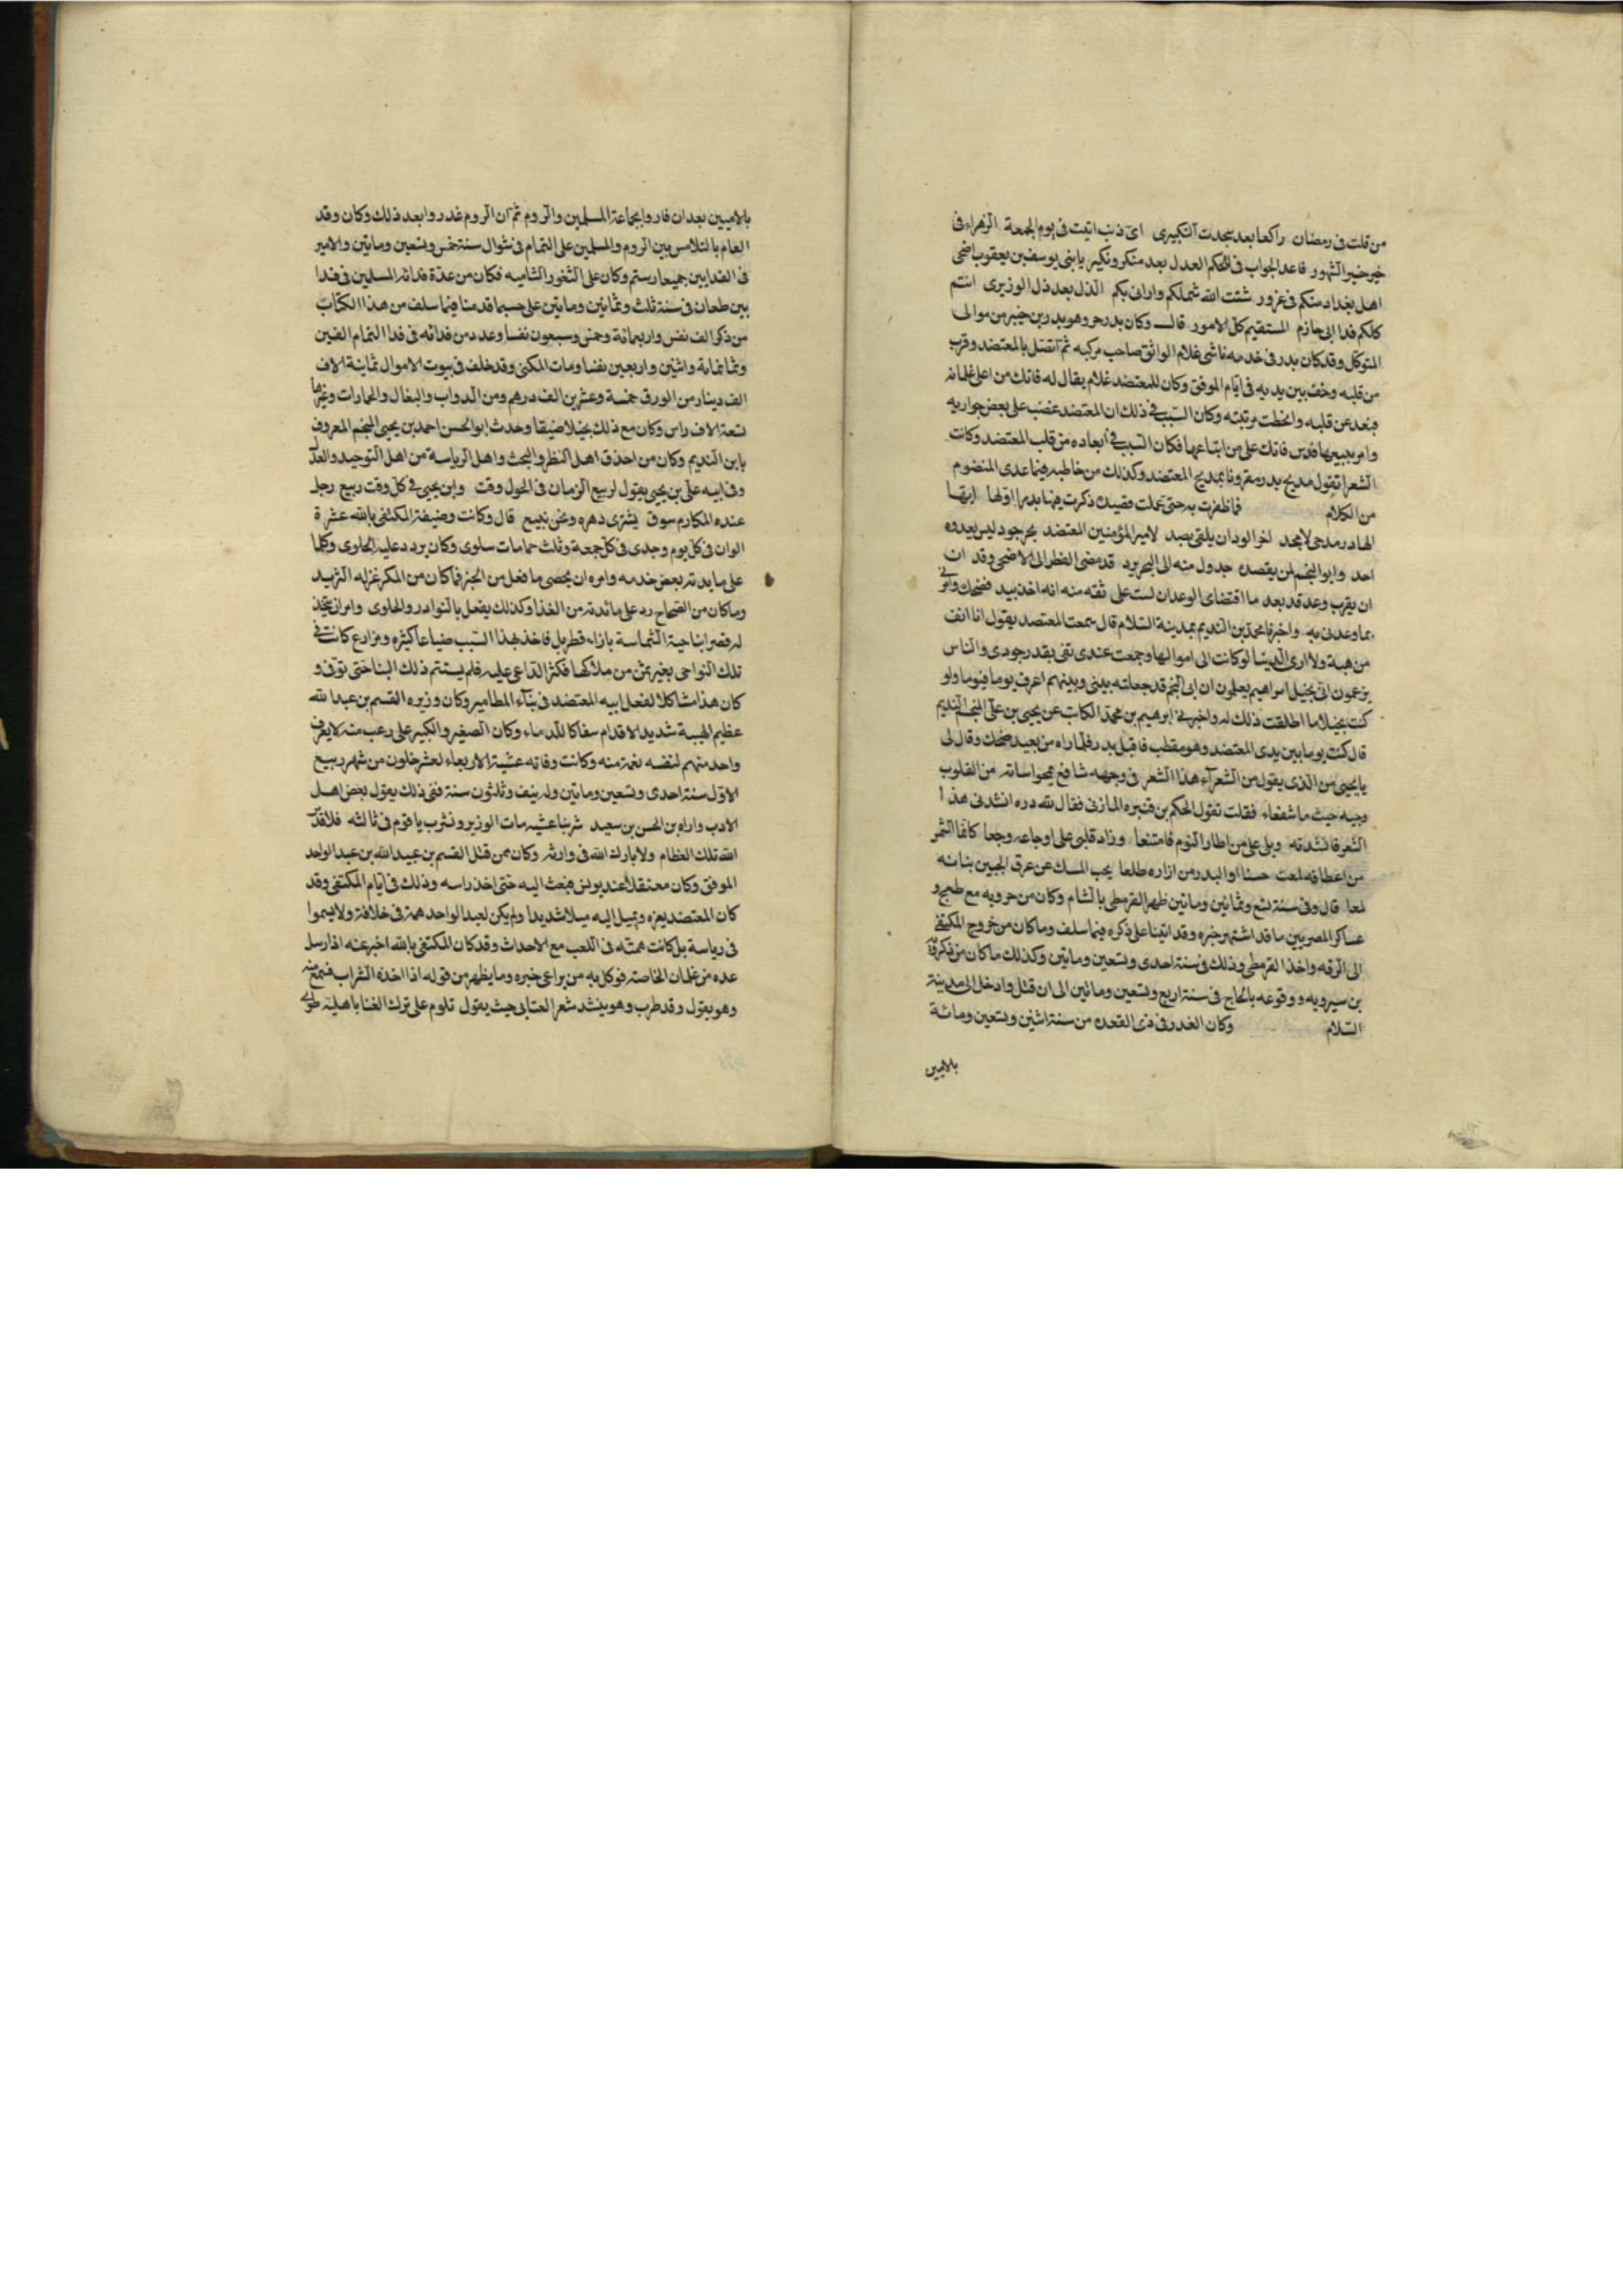 من قلت فى رمضان راكعا بعد سجدت التكبيرى اى ذنب اتيت فى يوم الجمعة الزهراء فى
خير خير الشهور فاعد الجواب فى الحكم العدل بعد منكر ونكير يا بنى يوسف بن يعقوب اضحى
اهل بغداد منكم فى غرور شتت الله شملكم وارانى بكم الذل بعد ذل الوزيرى انتم
كلكم فدا ابى حازم المستقيم كل الامور قال وكان بدر حر وهو بدر بن خير من موالى
المتوكل وقد كان بدر فى خدمه ناشى غلام الواثق صاحب مركبه ثم اتصل بالمعتضد وقرب
من قلبه وخف بين يديه فى ايام الموفق وكان للمعتضد غلام يقال له فاتك من اعلى غلمانه
فبعد عن قلبه وانحطت مرتبته وكان السبب فى ذلك ان المعتضد غضب على بعض جواريه
وامر ببيعها فدس فاتك على من ابتاعها فكان السبب فى ابعاده من قلب المعتضد وكانت
الشعرا تقول مديح بدر مقرونا بمديح المعتضد وكذلك من خاطبه فيما عدى المنضوم
من الكلام فاظفرت به حتى عملت قصيدة ذكرت فيها بدرا اولها ايها
الهادر مدحى لا يجد لغر الودان يلقى بصد لامير المؤمنين المعتضد بحر جود ليس يعدوه
احد وابو النجم لمن يقصده جدول منه الى البحر يرد قد مضى الفطر الى الاضحى وقد ان
ان يقرب وعد قد بعد ما اقتضاى الوعدان لست على ثقه منه انه اخذ بيد فضحك وامر لى
بما وعدنى به واخبرنا محمد بن النديم بمدينة السلام قال سمعت المعتضد يقول انا انف
من هبة ولا ارى الدينا لو كانت الى اموالها وجمعت عندى تفى بقدر جودى والناس
يزعمون انى بخيل اتراهم يعلمون ان ابى النجم قد جعلته بينى وبينهم اعرف يوما فيوما ولو
كنت بخيلا ما اطلقت ذلك له واخبرنى ابرهيم بن محمد الكاتب عن يحيى بن على المنجم النديم
قال كنت يوما بين يدى المعتضد وهو مقطب فاقبل بدر فلما راه من بعيد ضحك وقال لى
يا يحيى من الذى يقول من الشعرآء هذا الشعر فى وجهه شافع يمحو اساته من القلوب
وجيه حيث ما شفعاء فقلت تقول الحكم بن قنبره المازنى فقال لله دره انشدنى هذا
الشعر فانشدته ويلى على من اطار النوم فامتنعا وزاد قلبى على اوجاعه وجعا كانما الشمر
من اعطافه لمعت حسنا او البدر من ازاره طلعا يحب المسك عن عرق الجبين بنانه
لمعا قال وفى سنة تسع وثمانين ومايتين ظهر القرمطى بالشام وكان من حروبه مع طغج و
عساكر المصريين ما قد اشتهر خبره وقد اتينا على ذكره فيما سلف وما كان من خروج المكتفى
الى الرقه واخذ القرمطى وذلك فى سنة احدى وتسعين ومايتين وكذلك ما كان من ذكرويه
بن سيرويه ووقوعه بالحاج فى سنة اربع وتسعين ومايتين الى ان قتل وادخل الى مدينة
السلام وكان الغدر فى ذى القعده من سنة اثنين وتسعين ومائة
بالاميين
بالاميين بعد ان فادوا بجماعة المسلمين والروم ثم ان الروم غدروا بعد ذلك وكان وقد
العام باللامس بين الروم والمسلمين على التمام فى شوال سنة خمس وتسعين ومايتين والامير
فى الفدايين جميعا رستم وكان على الثغور الشاميه فكان من عدة فدائه المسلمين فى فدا
بين طعان فى سنة ثلث وثمانين ومايتين على حسبما قدمنا فيما سلف من هذا الكتاب
من ذكر الف نفس واربعمائة وخمس وسبعون نفسا وعدد من فدائه فى فدا التمام الفين
وثمانمائة واثنين واربعين نفسا ومات المكتفى وقد خلف فى بيوت الاموال ثمانية الاف
الف دينار من الورق خمسة وعشرين الف درهم ومن الدواب والبغال والحمارات وغيرها
تسعة الاف راس وكان مع ذلك بخيلا ضيقا وحدث ابو الحسن احمد بن يحيى المنجم المعروف
بابن النديم وكان من احذق اهل النظر والبحث واهل الرياسة من اهل التوحيد والعدل
وفى ابيه على بن يحيى يقول لربيع الزمان فى الحول وقت وابن يحيى فى كل وقت ربيع رجل
عنده المكارم سوق يشترى دهره ونحن نبيع قال وكانت وضيفة المكتفى بالله عشرة
الوان فى كل يوم وجدى فى كل جمعة وثلث حمامات سلوى وكان يردد عليه الحلوى وكلما
على مايدته بعض خدمه وامره ان يحصى ما فضل من الخبز فما كان من المكسر عزله الثريد
وما كان من الصحاح رد على مائدته من الغذا وكذلك يفعل بالنوادر والحلوى وامر ان يتخذ
له قصر ابناحية الشماسة بازاء قطربل فاخذ بهذا السبب ضياعا كثيره ومزارع كانت فى
تلك النواحى بغير ثمن من ملاكها فكثر الداعى عليه فلم يستتم ذلك البنا حتى توفى و
كان هذا مشاكلا لفعل ابيه المعتضد فى بنآء المطامير وكان وزيره القسم بن عبد الله
عظيم الهيبة شديد الاقدام سفاكا للدماء وكان الصغير والكبير على رعب منه لا يعرف
واحد منهم لنفسه نعمة منه وكانت وفاته عشية الاربعاء لعشر خلون من شهر ربيع
الاول سنة احدى وتسعين ومايتين وله نيف وثلثون سنة ففى ذلك يقول بعض اهل
الادب واراه بن الحسن بن سعيد شربنا عشيه مات الوزير ونشرب يا قوم فى ثالثه فلا قدس
الله تلك العظام ولا بارك الله فى وارثه وكان ممن قتل القسم بن عبيد الله بن عبد الواحد
الموفق وكان معتقلا عند يونس فبعث اليه حتى اخذ راسه وذلك فى ايام المكتفى وقد
كان المعتضد يعزه ويميل اليه ميلا شديدا ولم يكن لعبد الواحد همة فى خلافة ولا يسموا
فى رياسة بل كانت همته فى اللعب مع الاحداث وقد كان المكتفى بالله اخبر عنه انه ارسل
عده من غلمان الخاصة فوكل به من يراعى خبره وما يظهر من قوله اذا اخذه الشراب فسمع منه
وهو يقول وقد طرب وهو ينشد شعر العتابى حيث يقول تلوم على ترك الغنا باهلية طوى